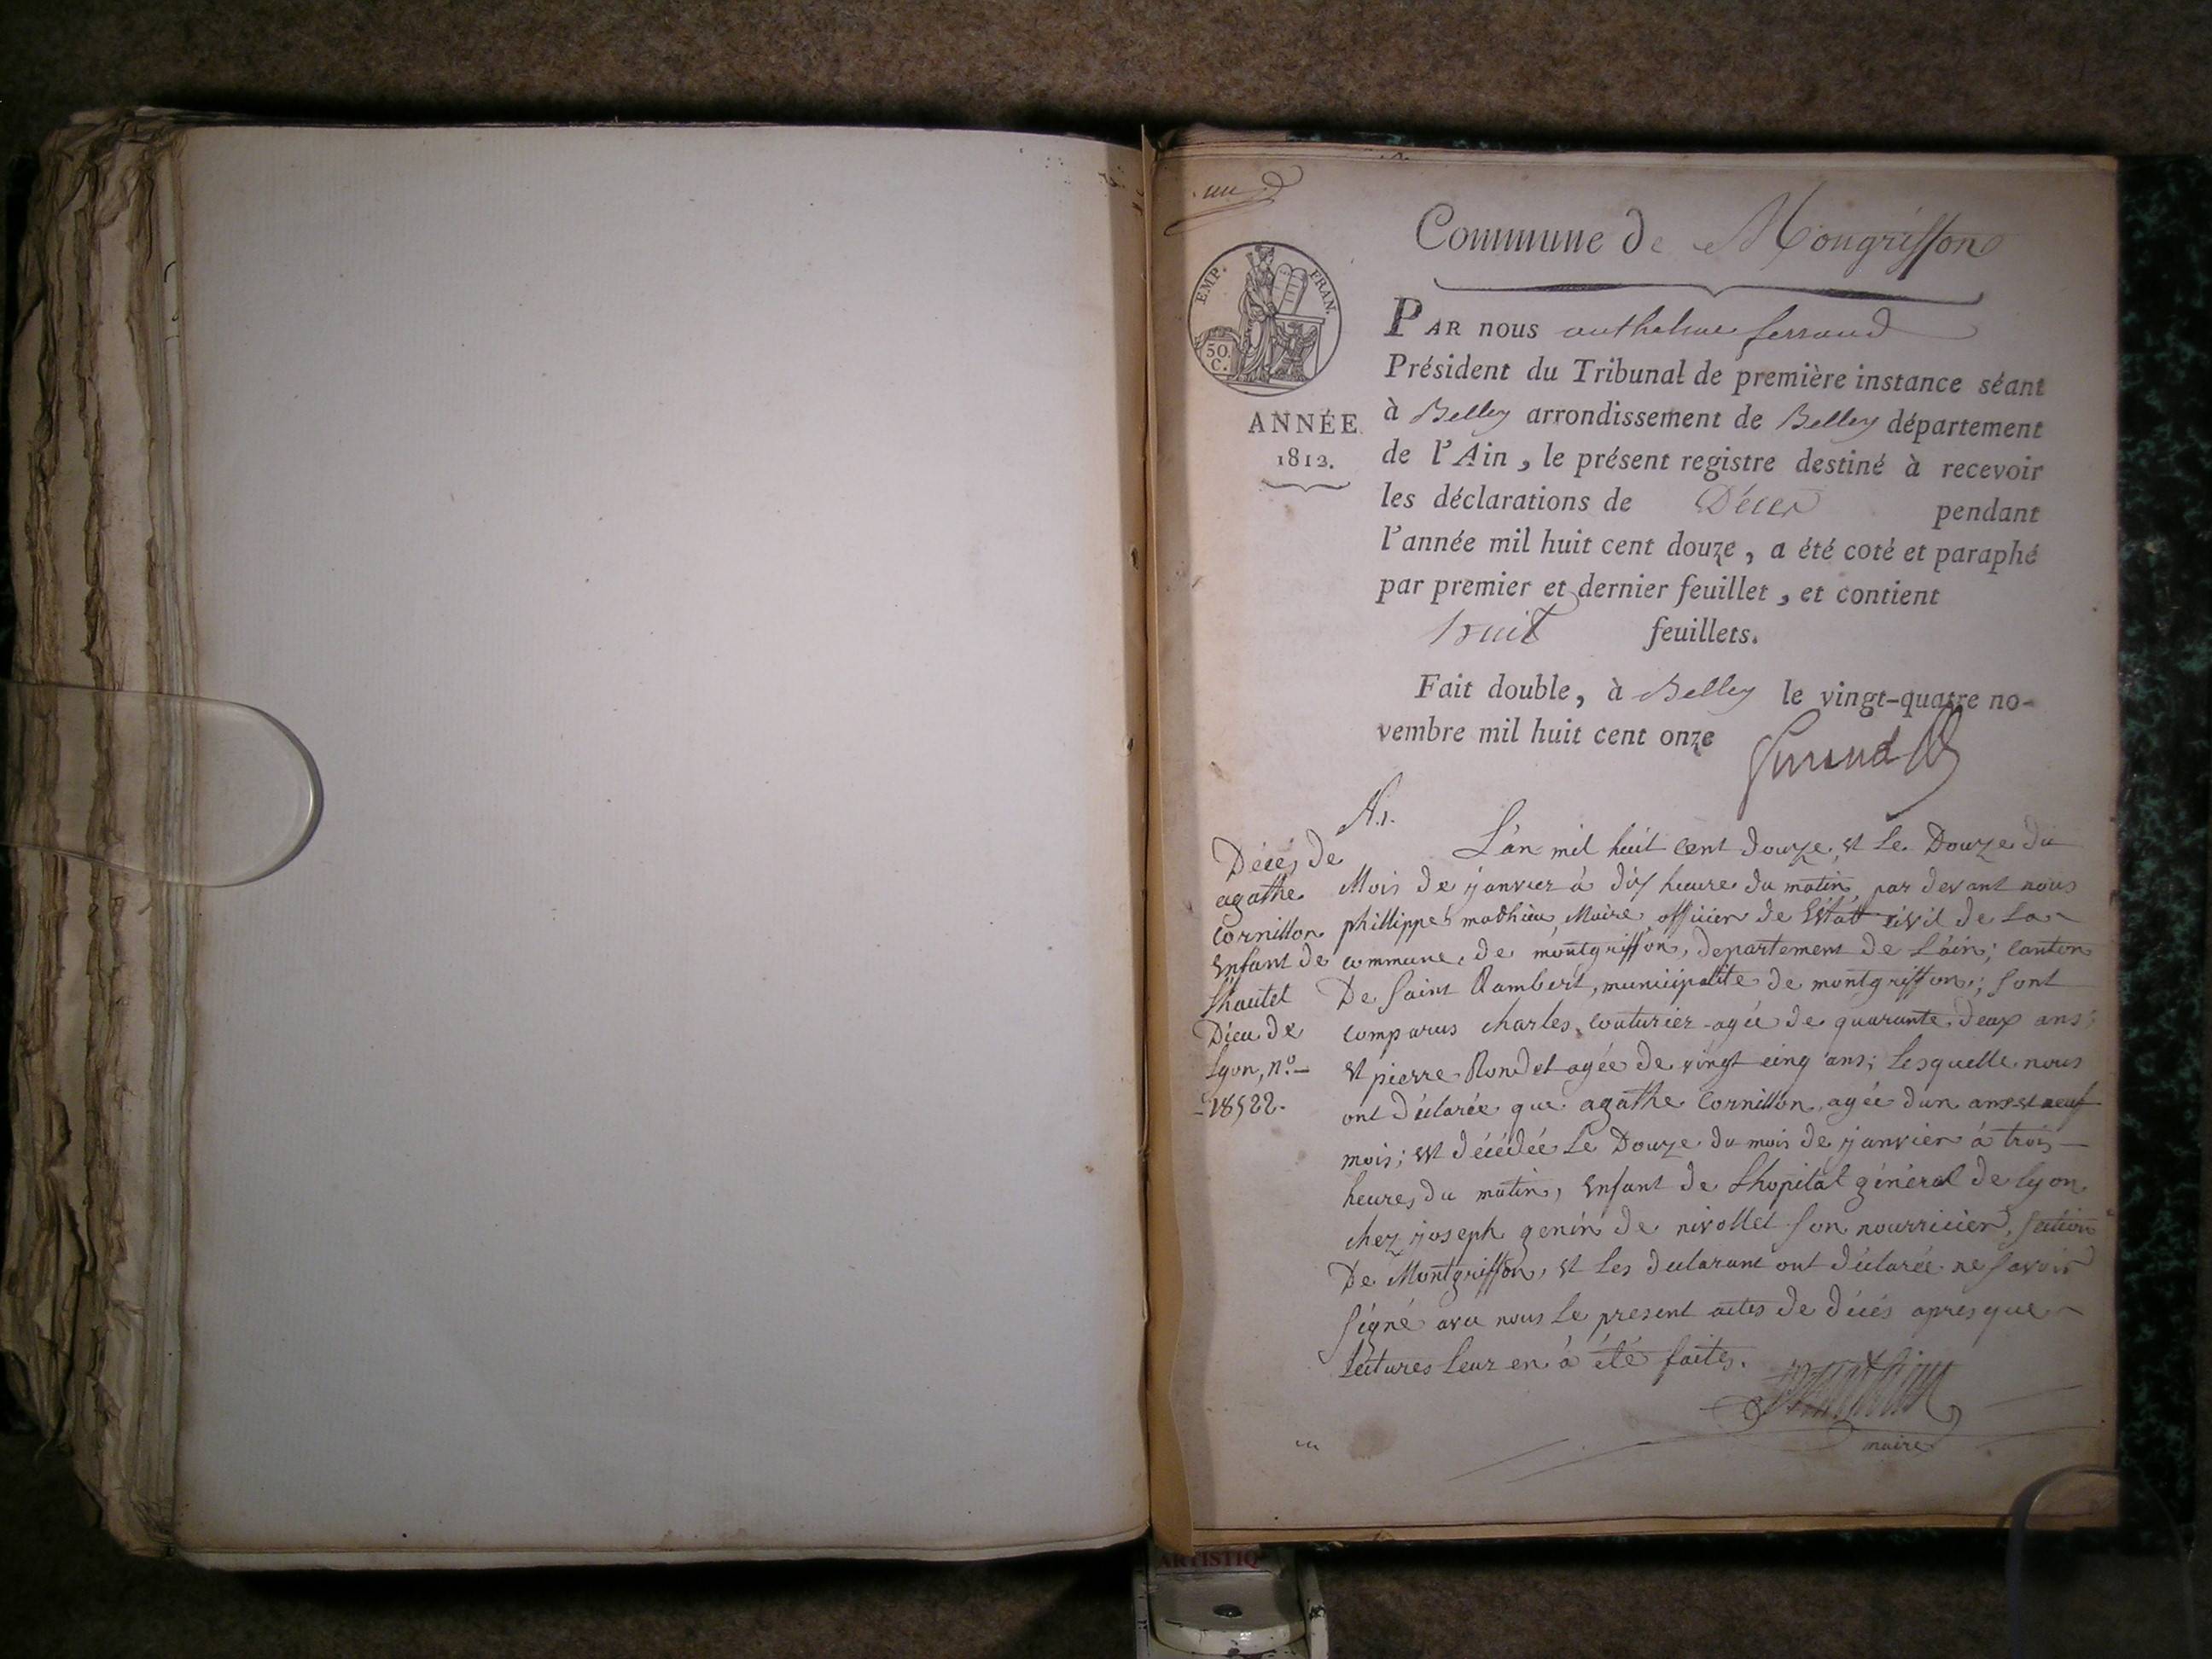 un
Commune de Mongriffon
EMP. FRAN.
50.
C.
ANNÉE
1812.
PAR nous anthelme ferrand
Président du Tribunal de première instance séant
à Belley arrondissement de Belley département
de l'Ain, le présent registre destiné à recevoir
les déclarations de Décès pendant
l'année mil huit cent douze, a été coté et paraphé
par premier et dernier feuillet, et contient
huit feuillets.
Fait double, à Belley le vingt-quatre no-
vembre mil huit cent onze
N.1.
Décés de
agathe
Cornillon
Enfant de
Lhautel
Dieu de
Lyon, n.o
18522.
L'an mil huit cent douze, et le Douze du
Mois de janvier à dix heure du matin par devant nous
phillippe mathieu, Maire officier de L'état civil de La
commune de montgriffon, departement de L'áin; canton
De saint Rambert, municipalité de montgriffon; sont
comparus charles couturier agée de quarante deux ans;
et pierre Rondet agée de vingt cinq ans; Lesquelle nous
ont déclarée que agathe Cornillon, agée dun ans et neuf
mois; est décédée Le Douze du mois de janvier à trois
heures du matin, Enfant de Lhopital général de Lyon
chez joseph genin de nivollet son nourricier, section
De Montgriffon, et Les declarant ont déclarée ne savoir
signé avec nous Le present actes de décés apres que
Lectures Leur en à été faites.
maire
ARTISTIQ